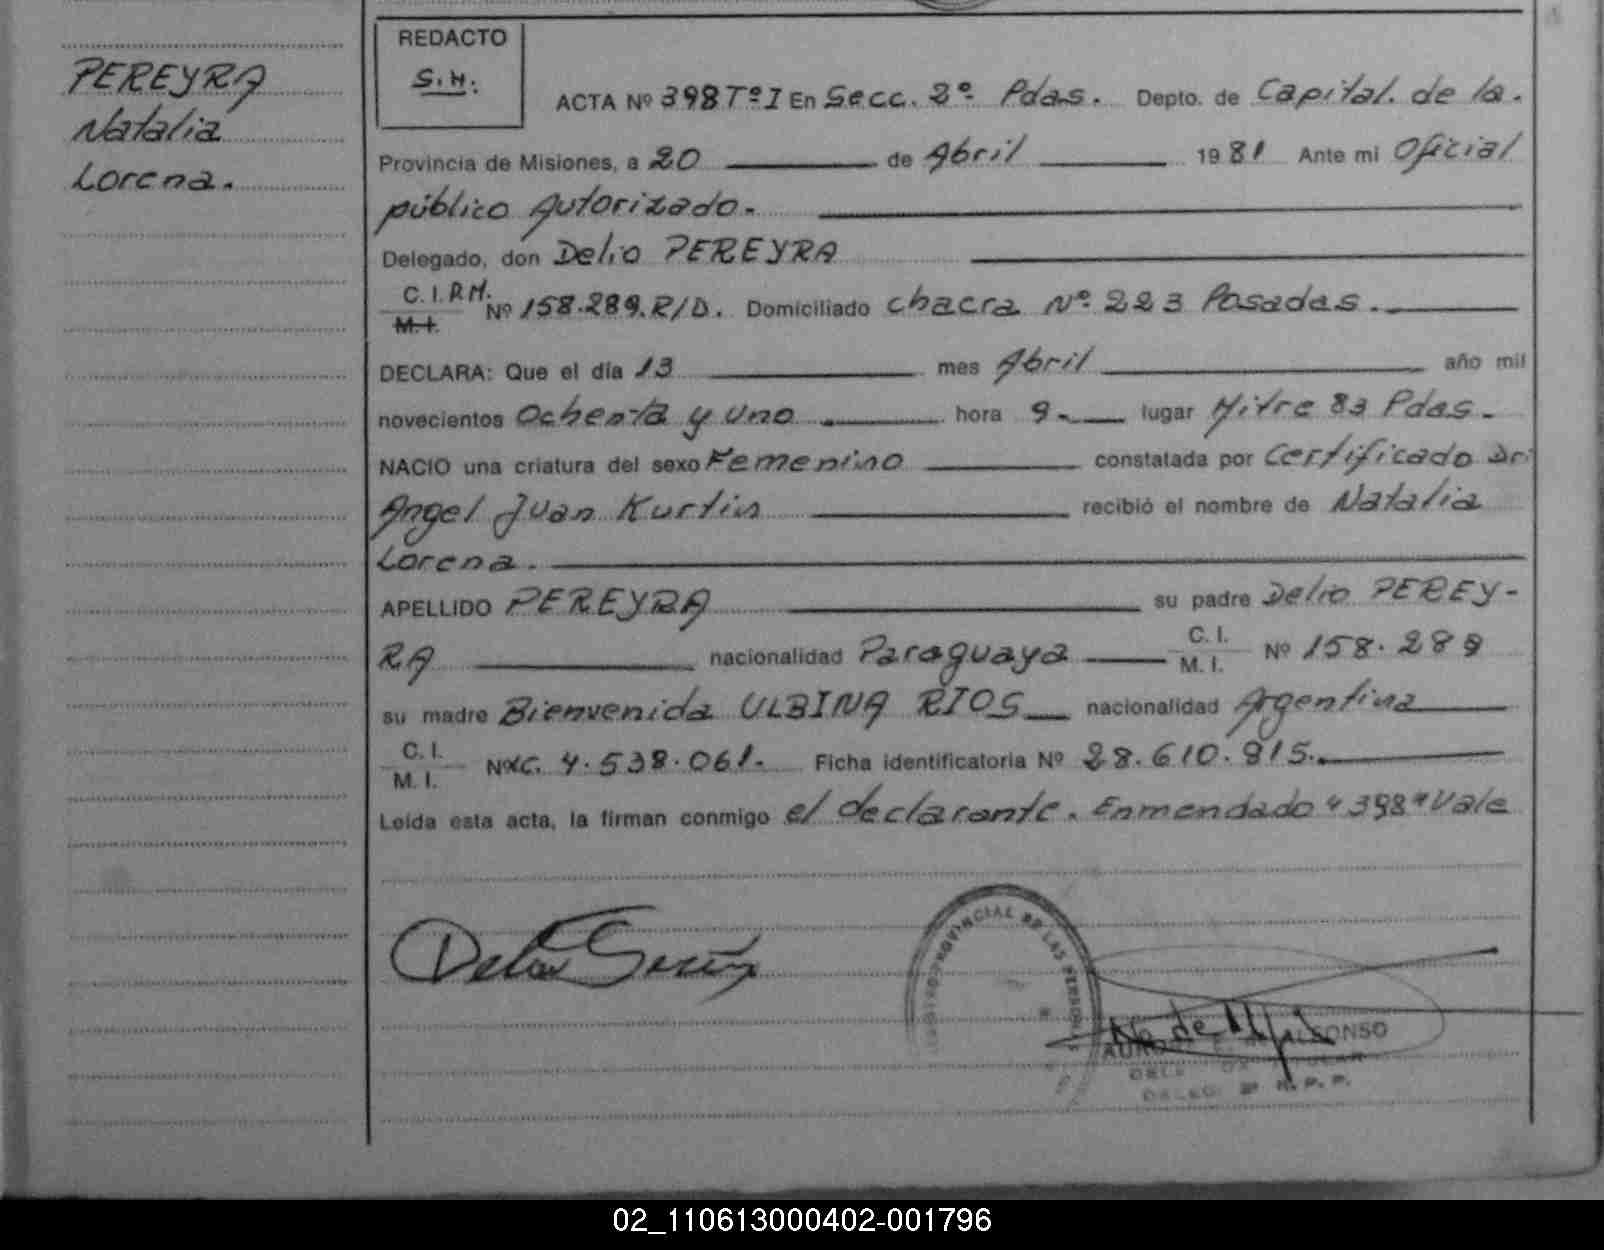 PEREYRA
Natalia
Lorena.
REDACTO
S.H.
ACTA Nº 398 Tº I En Secc. 2º Pdas. Depto. de Capital. de la.
Provincia de Misiones, a 20 de Abril 1981 Ante mi Oficial
público Autorizado.
Delegado, don Delio PEREYRA
C.I.P.M.
M.I. Nº 158.289.R/D. Domiciliado chacra Nº 223 Posadas.
DECLARA: Que el día 13 mes Abril año mil
novecientos Ochenta y uno hora 9. lugar Mitre 83 Pdas.
NACIO una criatura del sexo Femenino constatada por Certificado Dr.
Angel Juan Kurtin recibió el nombre de Natalia
Lorena.
APELLIDO PEREYRA su padre Delio PEREY-
RA nacionalidad Paraguaya C.I.
M.I. Nº 158.289
su madre Bienvenida ULBINA RIOS nacionalidad Argentina
C.I.
M.I. Nº LC. 4.538.061. Ficha identificatoria Nº 28.610.815.
Leída esta acta, la firman conmigo el declarante. Enmendado "398" Vale
PROVINCIAL DE LAS PERSONAS
02_110613000402-001796